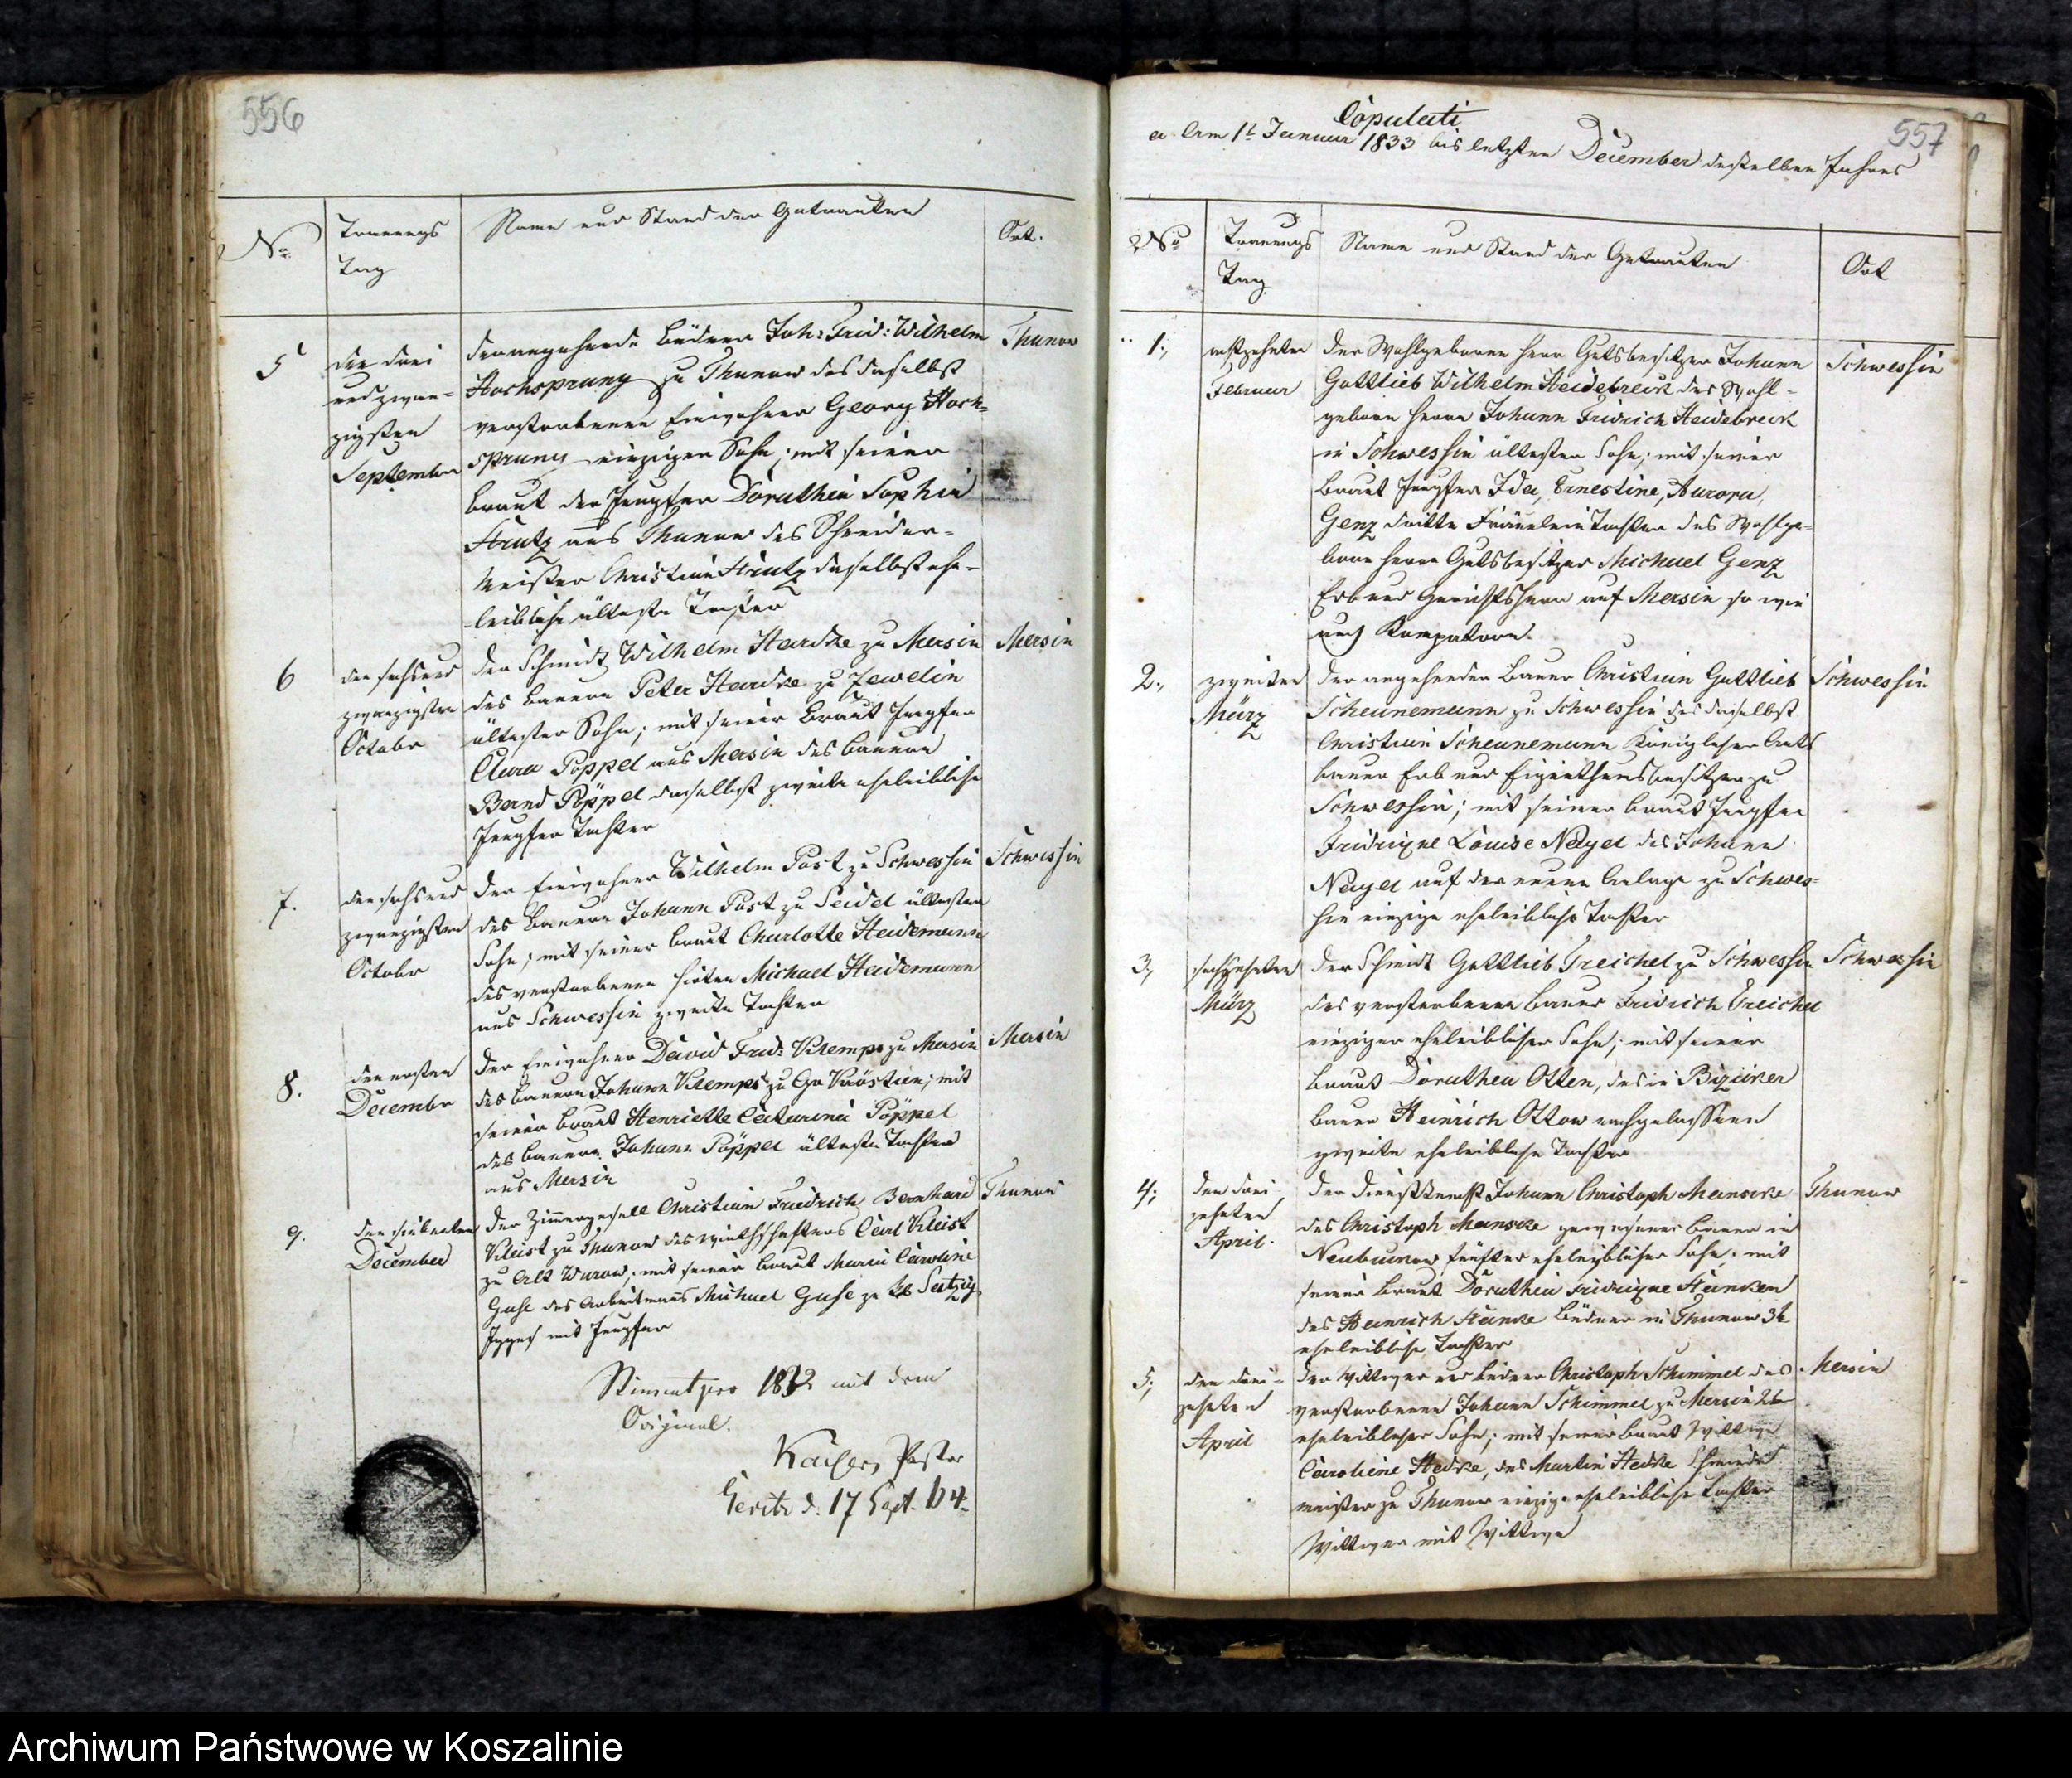 556
No
Trauungs
Tag
Name und Stand der Getrauten
Ort.
5
den drei
und zwan=
zigsten
September
der angehende Büdner Joh: Frid: Wilhelm
Hochsprung zu Thunow des daselbst
verstorbenen Einwohner Georg Hoch=
sprung einziger Sohn; mit seiner
Braut der Jungfer Dorathea Sophia
Strutz aus Thunow des Schneider=
Meister Christian Strutz daselbst ehe=
leibliche älteste Tochter
Thunow
6
den sechs und
zwanzigsten
October
der Schmidt Wilhelm Hardke zu Mersin
des Bauern Peter Hardke zu Zewelin
ältester Sohn; mit seiner Braut Jungfer
Clara Pöppel aus Mersin des Bauern
Bernd Pöppel daselbst zweite eheleibliche
Jungfer Tochter
Mersin
7.
den sechs und
zwanzigsten
October
der Einwohner Wilhelm Post zu Schwessin
des Bauern Johann Post zu Seidel ältester
Sohn; mit seiner Braut Charlotte Heidemann
des verstorbenen Hirten Michael Heidemann
aus Schwessin zweite Tochter
Schwessin
8.
den ersten
December
der Einwohner David Frid: Klemp zu Mersin
des Bauern Johann Klemps zu Gr. mit
seiner Braut Henriette Catarina Pöppel
des Bauern Johann Pöppel älteste Tochter
aus Mersin
Mersin
9.
den siebenten
December
der Zimmergesell Christian Friedrich Bernhard
Kleist zu Thunow des Wirthschafters Carl Kleist
zu Alt Wurow; mit seiner Braut Maria Caroline
Guse des Arbeitmanns Michael Guse zu
mit Jungfer
Thunow
Stimmt pro 1832 mit dem
Original.
Kaiser, Pastor
Geritz d. 17 Sept.
557
Copulati
a. Vom 1t Januar 1833 bis letzten December desselben Jahres
No
Trauungs
Tag
Name und Stand der Getrauten
Ort
1.,
achtzehnten
Februar
der Wohlgeborne Herr Gutsbesitzer Johann
Gottlieb Wilhelm Heidebreck des Wohl=
gebornen Herrn Johann Fridrich Heidebreck
in Schwessin ältester Sohn; mit seiner
Braut Jungfer Ida, Ernestine, Aurora,
Genz dritte Fräulein Tochter des Wohlge=
bornen Herrn Gutsbesitzer Michael Genz
Erb und Gerichtsherr auf Mersin so wie
auch
Schwessin
2.,
zweiten
März
der angehende Bauer Christian Gottlieb
Scheunemann zu Schwessin des daselbst
Christian Scheunemann Königlicher Amts
bauer Erb und Eigenthumsbesitzer zu
Schwessin; mit seiner Braut Jungfer
Fridrique Louise Nagel des Johann
Nagel auf der neuen Anlage zu Schwes=
sin einzige eheleibliche Tochter
Schwessin
3.,
sechzehnten
März
der Schmidt Gottlieb Treichel zu Schwessin
des verstorbenen Bauer Fridrich Treichel
einziger eheleiblicher Sohn; mit seiner
Braut Dorathea Otten, des in Biziker
Bauer Heinrich Ottow nachgelassene
zweite eheleibliche Tochter
Schwessin
4;
den drei
zehnten
April.
der Dienstknecht Johann Christoph Manske
des Christoph Manske gewesener Bauer in
Neubuckow fünfter eheleiblicher Sohn; mit
seiner Braut Dorathea Fridrique Hänken
des Heinrich Hänke Büdner in Thunow 3te
eheleibliche Tochter
Thunow
5;
den drei=
zehnten
April
der Wittwer und Büdner Christoph Schimmel des
verstorbenen Johann Schimmel zu Mersin 2ter
eheleiblicher Sohn; mit seiner Braut Wittwe
Caroline Hedke, des Martin Hedke Schneider
meister zu Thunow einzige eheleibliche Tochter
Wittwer mit Wittwe
Mersin
Archiwum Państwowe w Koszalinie